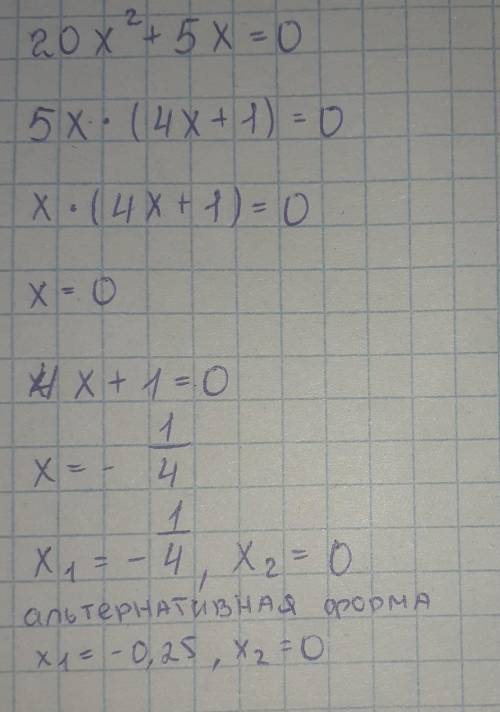 20x² + 5x = 0
5x · (4x + 1) = 0
x · (4x + 1) = 0
x = 0
4x + 1 = 0
x = - 1/4
x₁ = - 1/4, x₂ = 0
альтернативная форма
x₁ = -0,25, x₂ = 0